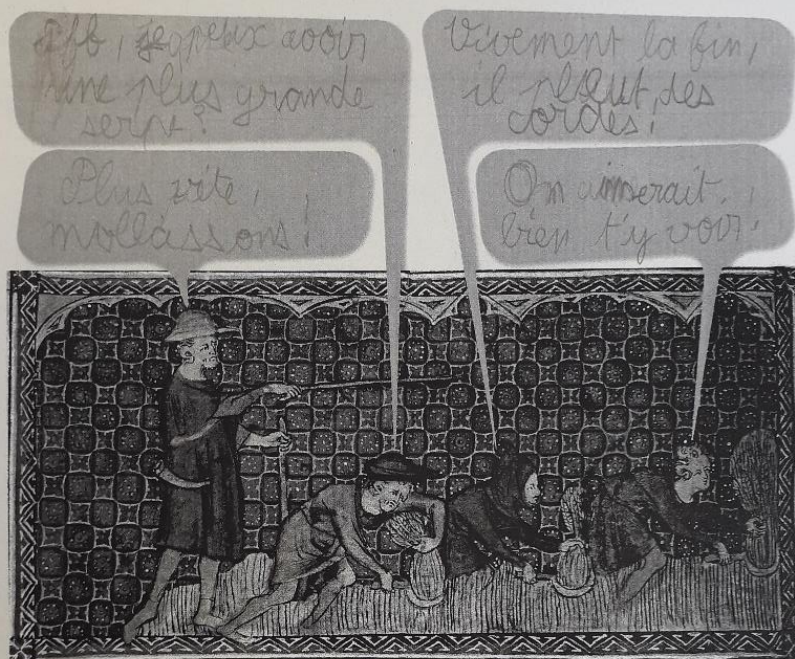 Pff, je peux avoir
une plus grande
serpt?
Vivement la fin,
il pleut, des
cordes!
Plus vite,
mollassons!
On aimerait,
bien t'y voir!